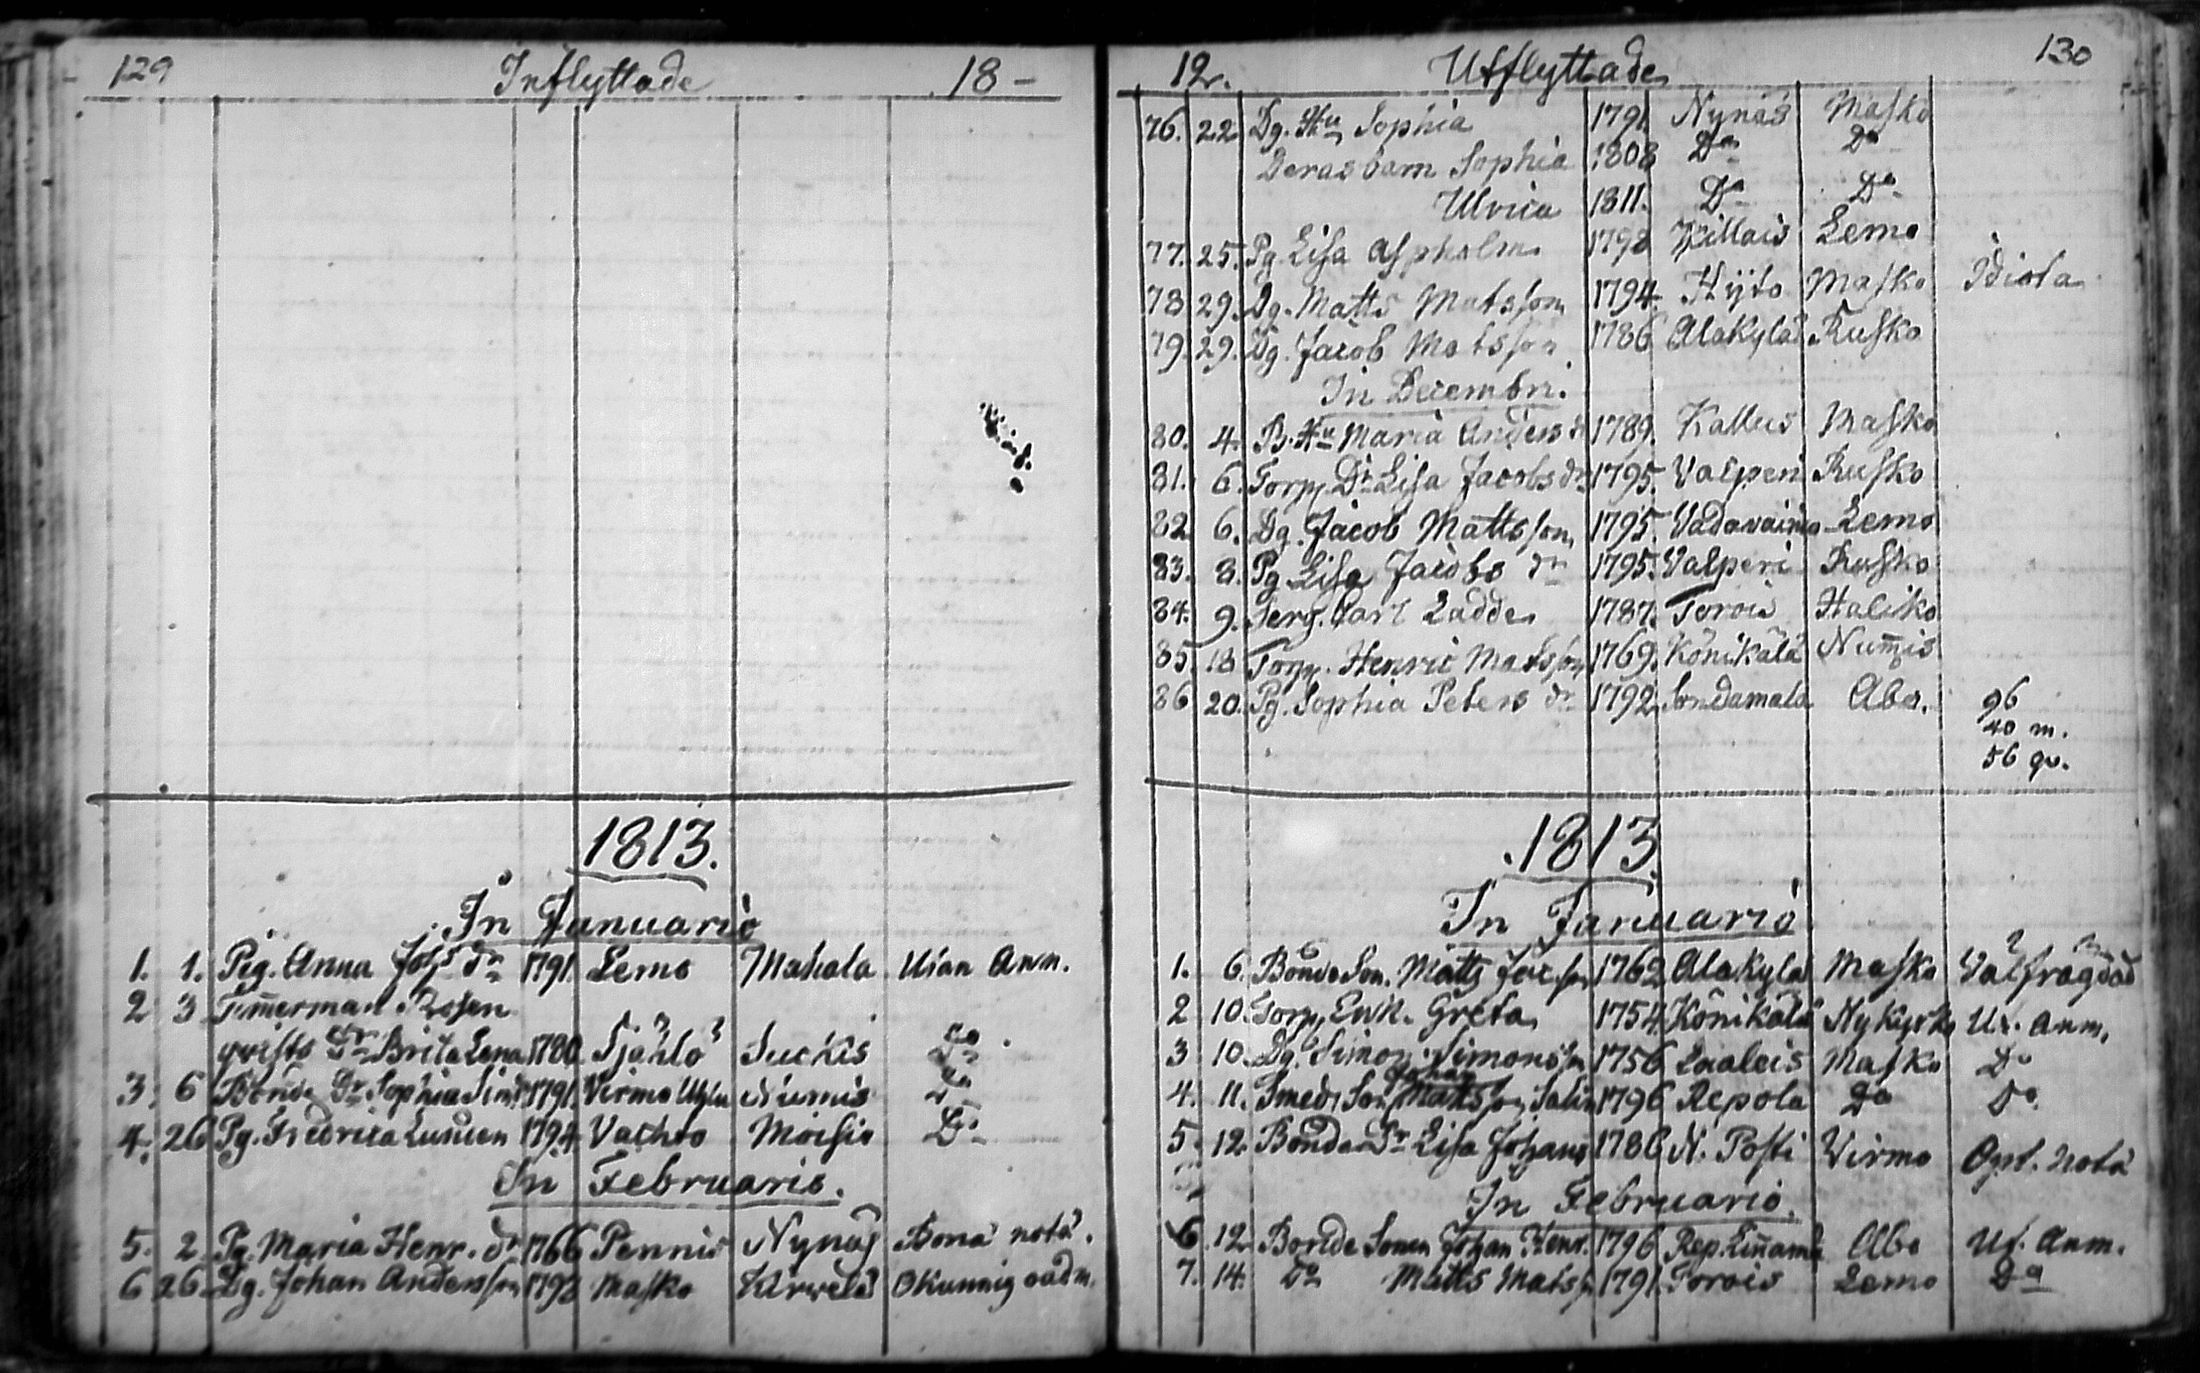 129 Inflyttade 18-
1813.
In Januario
1. 1. Pig. Anna Johs dr 1791 Lemo Mahala Utan Anm.
2 3 Timmerman Rosen
qvists Dr Brita Lena 1780 Sjählö Suckis Do
3. 6 Bonde Dr Sophia Sim dr 1791. Virmo Nummis Do
4. 26 Pg. Fredrica Lunden 1794 Vachto Moisio Do
In Februario.
5. 2 Pg. Maria Henr. dr 1766 Pennis Nynäs Bona nota.
6 26 Dg. Johan Andersson 1793 Masko Karvela Okunnig oadm.
12. Utflyttade 130
76. 22 Dg. Hu Sophia 1791 Nynäs Masko
Deras barn Sophia 1808 Do Do
Ulrica 1811. Do Do
77. 25. Pg. Lisa Aspholm 1798 Killais Lemo
78 29. Dg. Matts Matsson 1794. Hyto Masko Idiota
79. 29. Dg. Jacob Matsson 1786 Alakylä Rusko
In Decembri.
80. 4. B. Hu Maria Anders dr 1789. Kalleis Masko
81. 6. Torp. Dr Lisa Jacobs dr 1795. Valperi Rusko
82 6. Dg. Jacob Mattsson 1795. Vadavaino Lemo
83. 8. Pg Lisa Jacobs dr 1795. Valperi Rusko
84. 9. Serg. Carl Ladde 1787. Torois Haliko
85. 18 Torp. Henric Matsson 1769. Könikälä Nummis
86 20. Pg. Sophia Peters dr 1792 Sondamala Åbo. 96
40 m.
56 qv.
1813
In Januario
1. 6. Bonde Son. Matts Jacsson 1762 Alakylä Masko Välfrägdad
2 10. Torp. Enk. Greta 1754 Könikälä Nykyrko Ut. Anm.
3 10. Dg. Simon Simonsson 1756 Laaleis Masko Do
Johan
4. 11. Smeds Son Mattsson Salin 1796 Repola Do Do
5. 12. Bonde Dr Lisa Johans 1786 N. Posti Virmo Opt. nota
In Februario.
6 12. Bonde Sonen Johan Henr. 1796 Rep. Linnamä Åbo Ut. Anm.
7. 14. Do Matts Matss. 1791. Torois Lemo Do